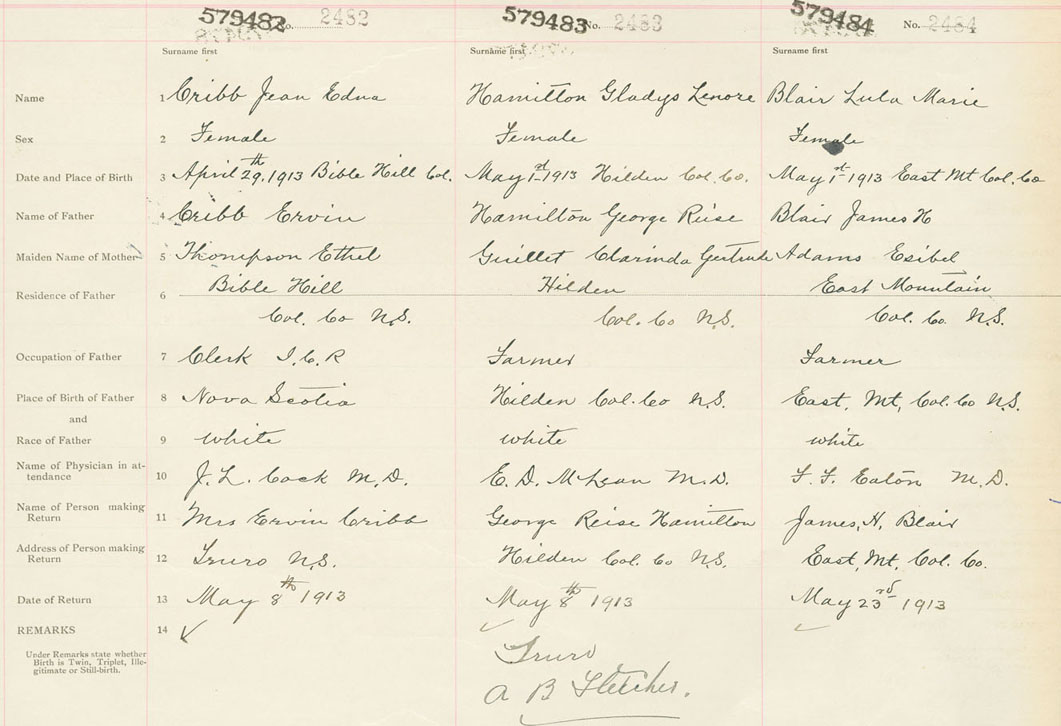 579482 No. 2482 579483 No. 2483 579484 No. 2484
Surname first Surname first Surname first
Name 1 Cribb Jean Edna Hamilton Gladys Lenore Blair Lula Marie
Sex 2 Female Female Female
Date and Place of Birth 3 April 29th, 1913 Bible Hill Col. May 1st 1913 Hilden Col. Co. May 1st 1913 East Mt Col. Co
Name of Father 4 Cribb Ervin Hamilton George Reise Blair James H
Maiden Name of Mother 5 Thompson Ethel Guillet Clarinda Gertrude Adams Esibel
Residence of Father 6 Bible Hill Hilden East Mountain
Col. Co N.S. Col. Co N.S. Col. Co. N.S.
Occupation of Father 7 Clerk I.C.R Farmer Farmer
Place of Birth of Father 8 Nova Scotia Hilden Col. Co N.S. East, Mt, Col. Co N.S.
and
Race of Father 9 white white white
Name of Physician in at-
tendance 10 J. L. Cock M.D. E. D. McLean M.D. F. F. Eaton M.D.
Name of Person making
Return 11 Mrs Ervin Cribb George Reise Hamilton James, H, Blair
Address of Person making
Return 12 Truro N.S. Hilden Col. Co N.S. East, Mt, Col. Co.
Date of Return 13 May 8th 1913 May 8th 1913 May 23rd 1913
REMARKS 14
Under Remarks state whether
Birth is Twin, Triplet, Ille-
gitimate or Still-birth.
Truro
A B Fletcher.